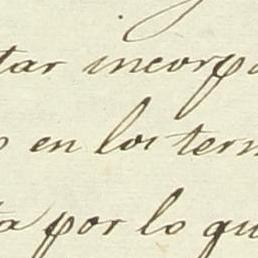 tar incorpo
o en los term
ta por lo qu